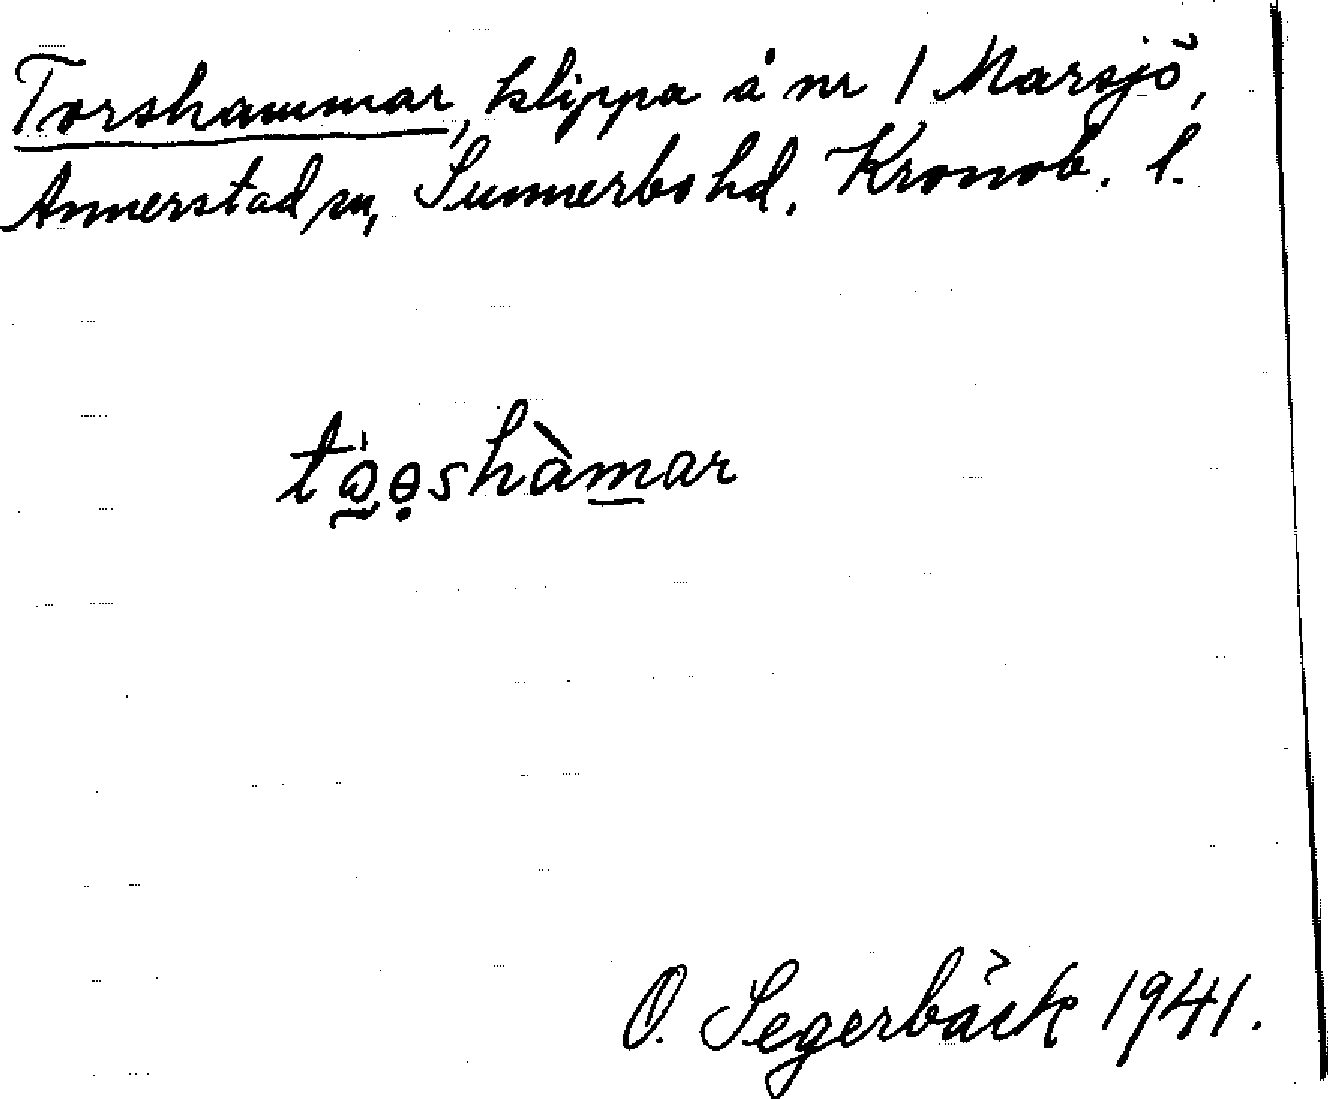 Torshammar, klippa å nr 1 Marsjö,
Annerstad sn, Sunnerbo hd. Kronob. l.
O. Segerbäck 1941.